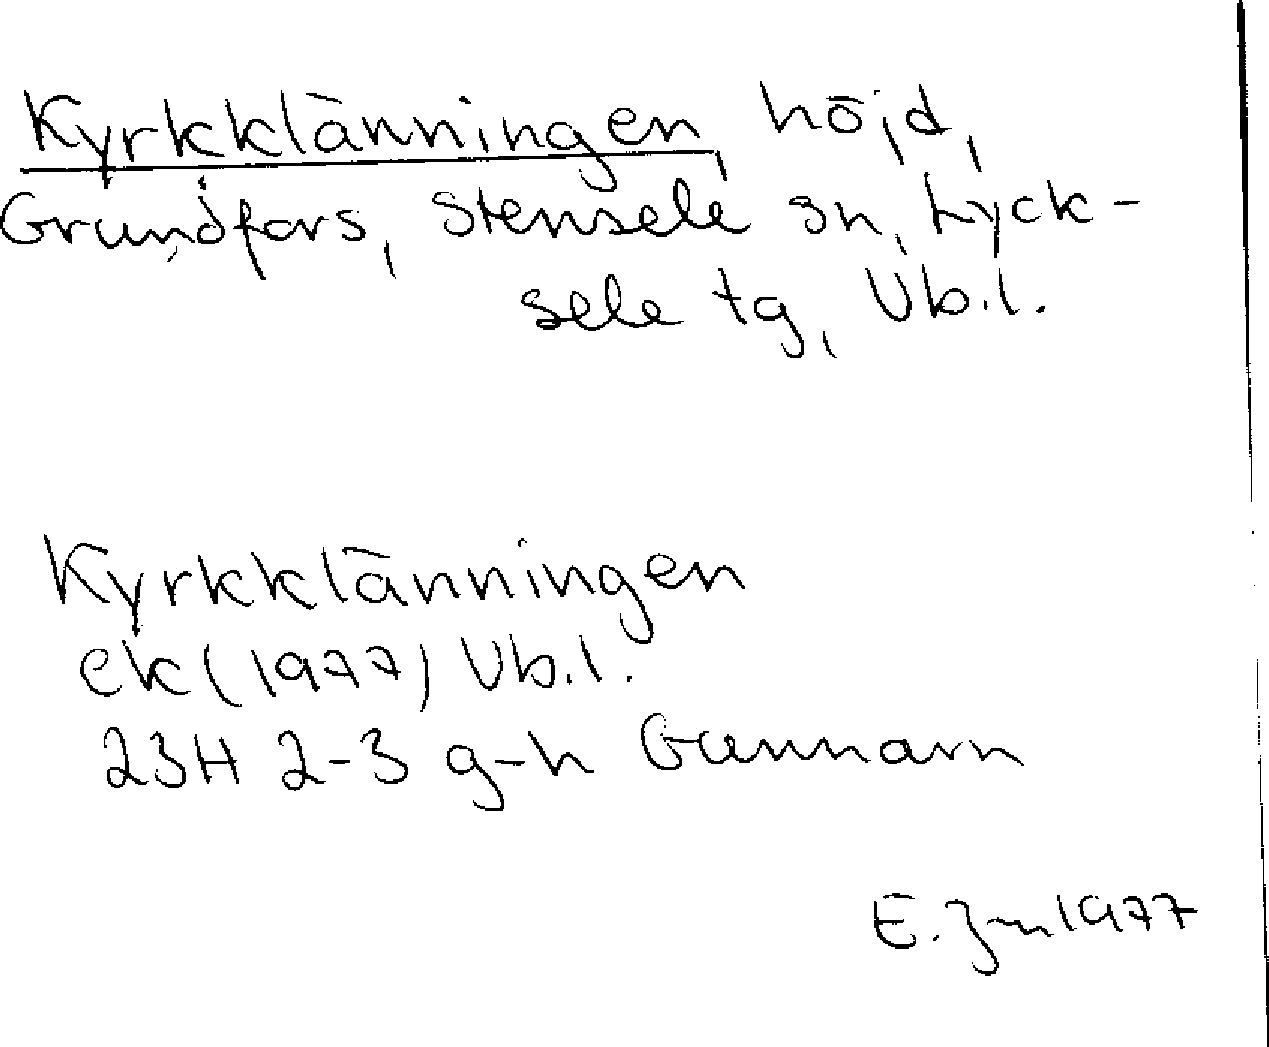 Kyrkklänningen, höjd,
Grundfors, Stensele sn, Lyck-
sele tg, Vb.l.
Kyrkklänningen
ek (1977) Vb.l.
23H 2-3 g-h Gunnarn
E. 1977